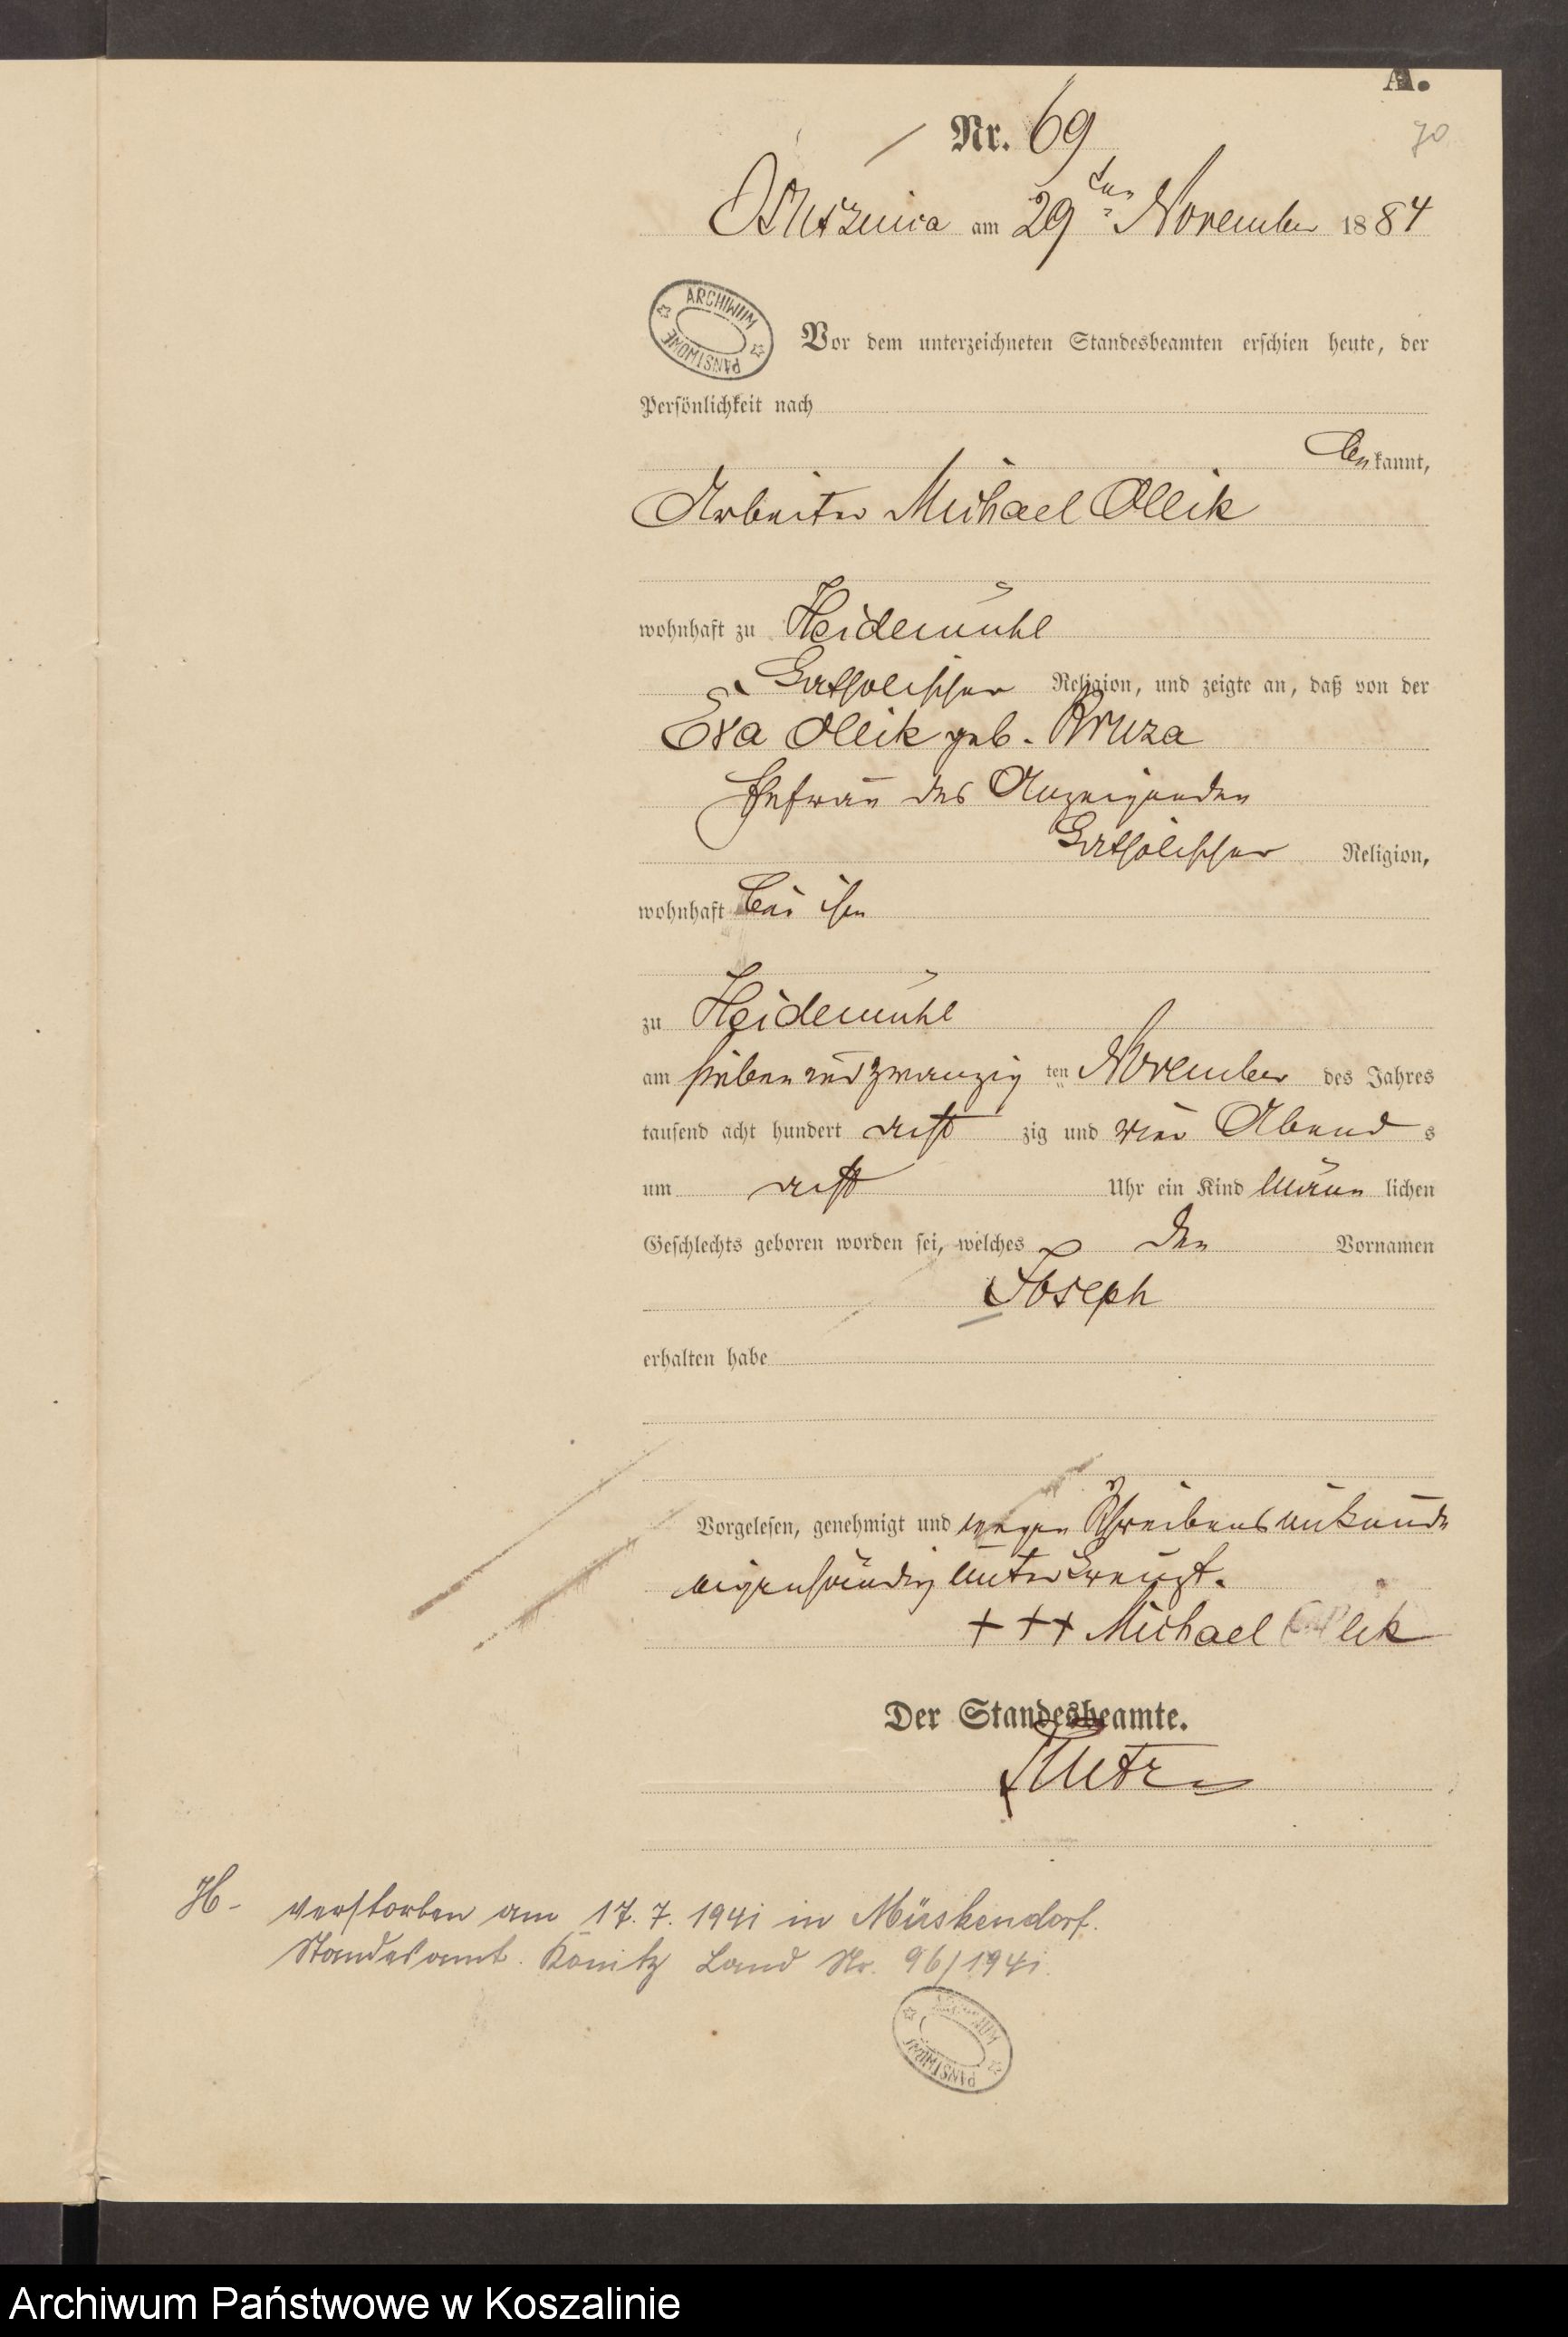 A.
Nr. 69
70
Osusznica am 29ten November 1884
ARCHIWUM
PAŃSTWOWE
Vor dem unterzeichneten Standesbeamten erschien heute, der
Persönlichkeit nach
bekannt,
Arbeiter Michael Ollik
wohnhaft zu Heidemühl
katholischer Religion, und zeigte an, daß von der
Eva Ollik geb. Bruza
Ehefrau des Anzeigenden
katholischer Religion,
wohnhaft bei ihm
zu Heidemühl
am sieben und zwanzig ten November des Jahres
tausend acht hundert acht zig und vier Abend s
um acht Uhr ein Kind männ lichen
Geschlechts geboren worden sei, welches den Vornamen
Joseph
erhalten habe
Vorgelesen, genehmigt und wegen Schreibensunkunde
eigenhändig unterkreuzt.
+++ Michael lik
Der Standesbeamte.
H - verstorben am 17. 7. 1941 in Müskendorf.
Standesamt. Konitz Land Nr. 96/1941.
ARCHIWUM
PAŃSTWOWE
Archiwum Państwowe w Koszalinie